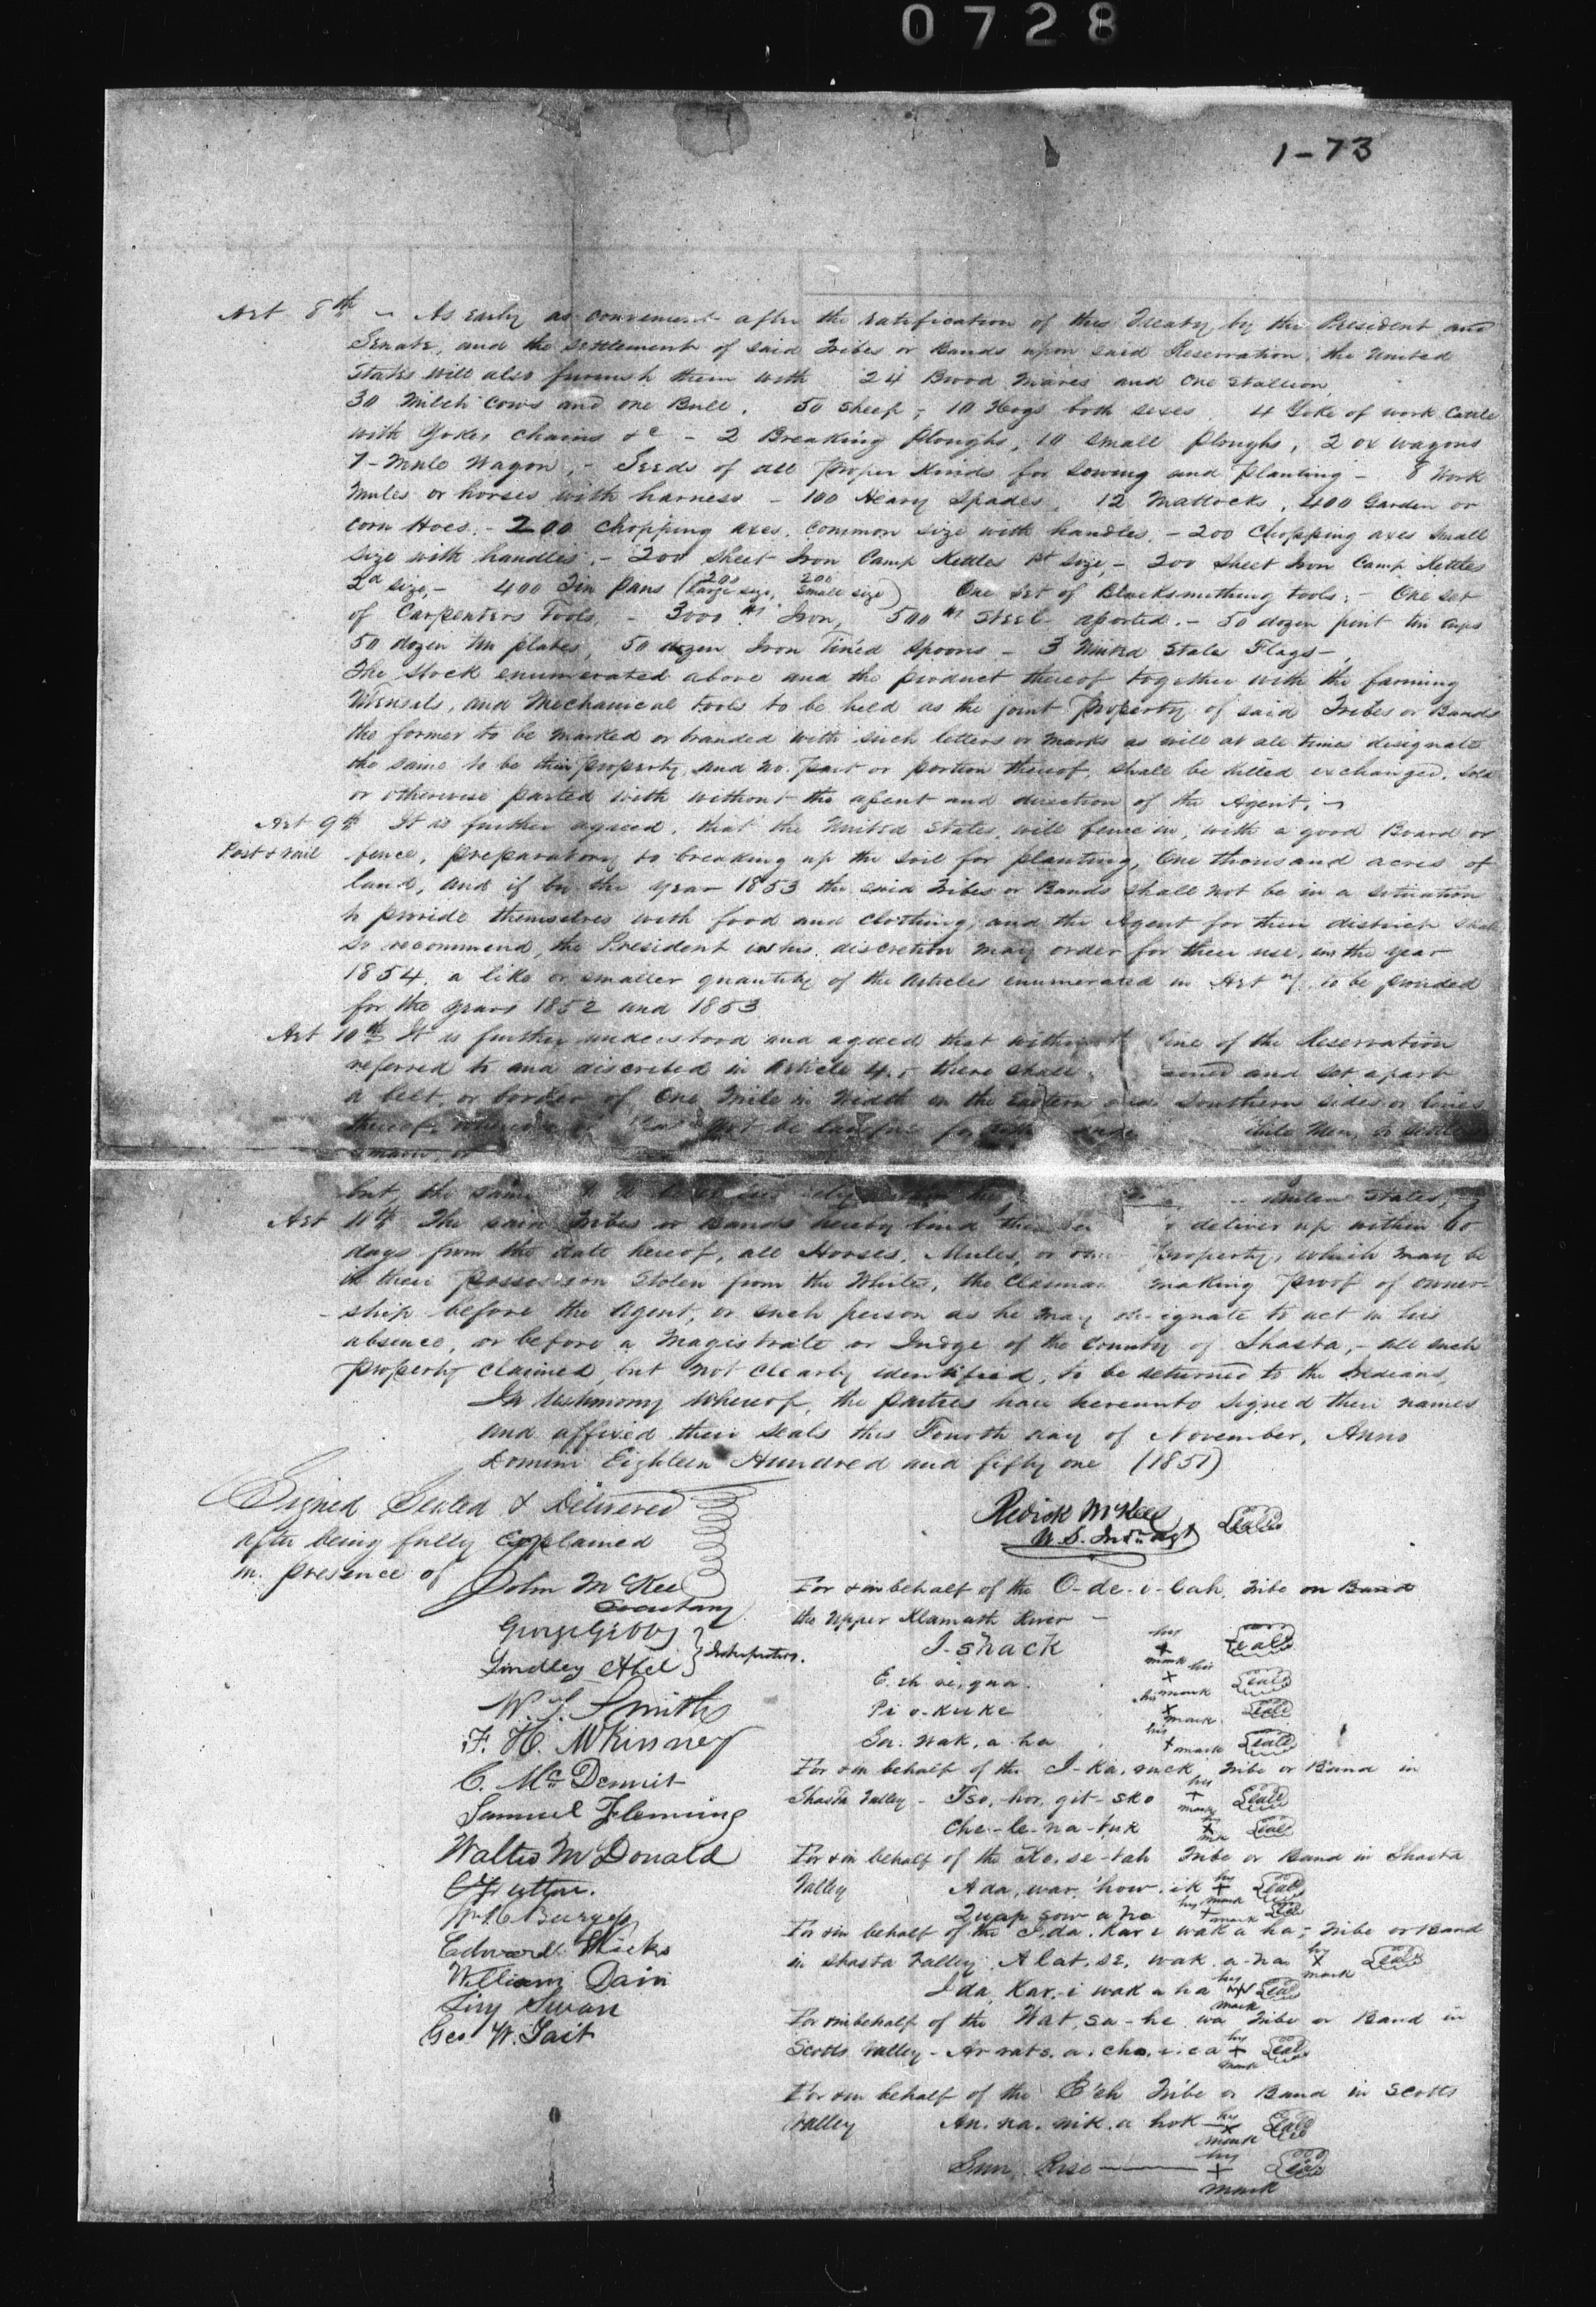 0728
1-73
Art 8th - As early as convenient after the ratification of this Treaty by the President and
Senate, and the settlement of said Tribes or Bands upon said Reservation, the United
States will also furnish them with 24 Brood Mares and One Stallion
30 Milch Cows and one Bull. 50 Sheep, 10 Hogs both sexes. 4 Yoke of work Cattle
with Yokes, chains &c - 2 Breaking Ploughs, 10 small Ploughs, 2 ox wagons
1-Mule Wagon, - Seeds of all proper Kinds for Sowing and Planting - 8 Work
Mules or horses with harness - 100 Heavy Spades, 12 Mattocks, 400 Garden or
corn Hoes. - 200 Chopping axes, common size with handles, - 200 Chopping axes Small
size with handles, - 200 sheet Iron Camp Kettles 1st size, - 200 sheet Iron Camp Kettles
2d size, - 400 Tin Pans (200 large size, 200 small size) One Set of Blacksmithing tools, - One set
of Carpenters Tools, - 3000 lbs Iron, 500 lbs Steel asorted. - 50 dozen pint tin cups
50 dozen tin plates, 50 dozen Iron Tined Spoons - 3 United States Flags -
The Stock enumerated above and the product thereof together with the farming
Utensils, and Mechanical tools to be held as the joint Property of said Tribes or Bands
the former to be marked or branded with such letters or marks as will at all times designate
the same to be their property, and no part or portion thereof, shall be killed exchanged, sold
or otherwise parted with without the assent and direction of the Agent, -
Art 9th It is further agreed, that the United States, will fence in, with a good Board or
Post & rail fence, preparatory to breaking up the soil for planting, One thousand acres of
land, and if by the year 1853 the said Tribes or Bands shall not be in a situation
to provide themselves with food and clothing, and the Agent for their district shall
so recommend, the President in his discretion may order for their use, in the year
1854, a like or smaller quantity of the articles enumerated in Art 7, to be provided
for the years 1852 and 1853
Art 10th It is further understood and agreed that within line of the Reservation
referred to and discribed in Article 4. there shall and set apart
a belt, or border of One Mile in Width on the Eastern and Southern sides or lines
thereof, not be lawful for Men, to settle
but, the same United States,
Art 11th The said Tribes or Bands hereby bind deliver up within 60
days from the date hereof, all Horses, Mules, or Property, which may be
in their possession Stolen from the Whites, the Claiman making proof of owner-
-ship before the Agent, or such person as he may designate to act in his
absence, or before a Magistrate or Judge of the County of Shasta, - all such
property claimed, but not clearly identified, to be returned to the Indians,
In testimony whereof, the parties have hereunto signed their names
and affixed their seals this Fourth day of November, Anno
Domini Eighteen Hundred and fifty one (1851)
Signed Sealed & Delivered
after being fully explained
in presence of
John McKee
Secretary
George Gibbs
Lindley Abel } Interpreters.
W. T. Smith
F. H. McKinney
C. McDermit
Samuel Fleming
Walter McDonald
Edward Hicks
William Dain
Tiny Swan
Geo. W. Tait
Redick McKee
U. S. Indn Agt Seal
For & in behalf of the O-de-i-lah, Tribe or Band
the Upper Klamath River -
I-shack his + mark Seal
E. eh ne, qua. his + mark Seal
Pi o-kuke his + mark Seal
Sa. nak, a ha his + mark Seal
For & in behalf of the I-ka, ruck Tribe or Band in
Shasta Valley - Tso, hor, git-sko his + mark Seal
Che-le-na-tuk his + mk Seal
For & in behalf of the Ko, se-tah Tribe or Band in Shasta
Valley Ada, war, how, ik his + mark Seal
Quap sow a ha his + mark Seal
For & in behalf of the I, da, kar i wak a ha, Tribe or Band
in Shasta Valley, A lat, se, wak, a-na his + mark Seal
I da, Kar, i wak a ha his + mark Seal
For & in behalf of the Wat, sa-he, wa Tribe or Band in
Scotts Valley - Ar rats, a, cha, i, c a his + mark Seal
For & in behalf of the E'eh Tribe or Band in Scotts
Valley An, na, nik, a hok his + mark Seal
Sun Rise his + mark Seal